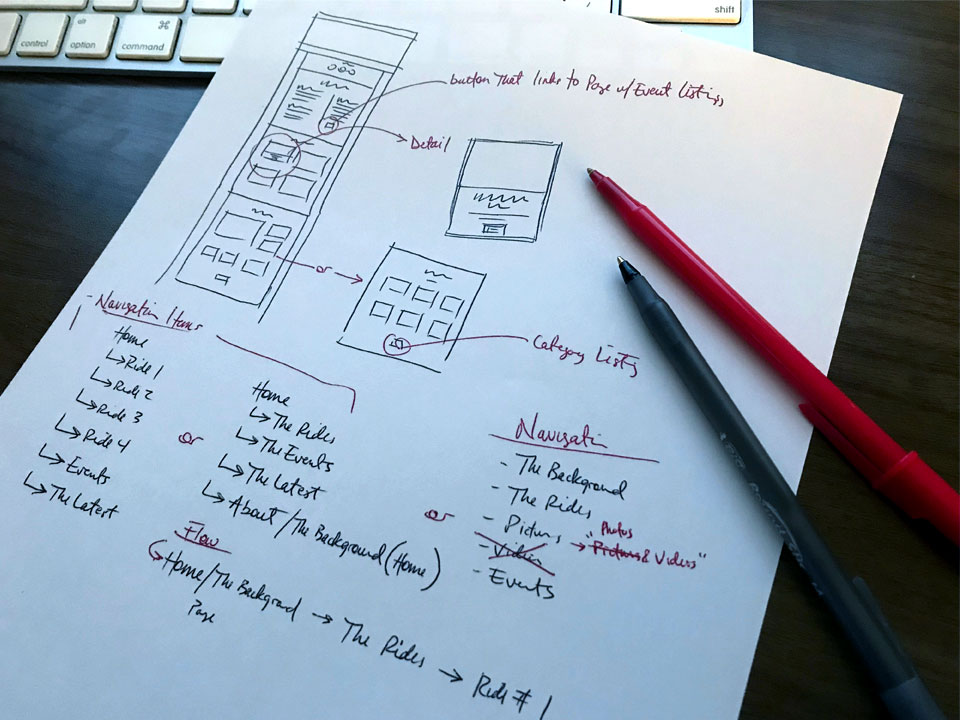 control
option
⌘
command
shift
button That links to Page w/ Event Listings
Detail
or
Category Listing
- Navigation Items
Home
↳ Ride 1
↳ Ride 2
↳ Ride 3
↳ Ride 4
↳ Events
↳ The Latest
or
Home
↳ The Rides
↳ The Events
↳ The Latest
↳ About / The Background (Home)
or
Navigation
- The Background
- The Rides
- Pictures → "Photos Pictures & Videos"
- Videos
- Events
Flow
Home/The Background → The Rides → Ride # 1
Page